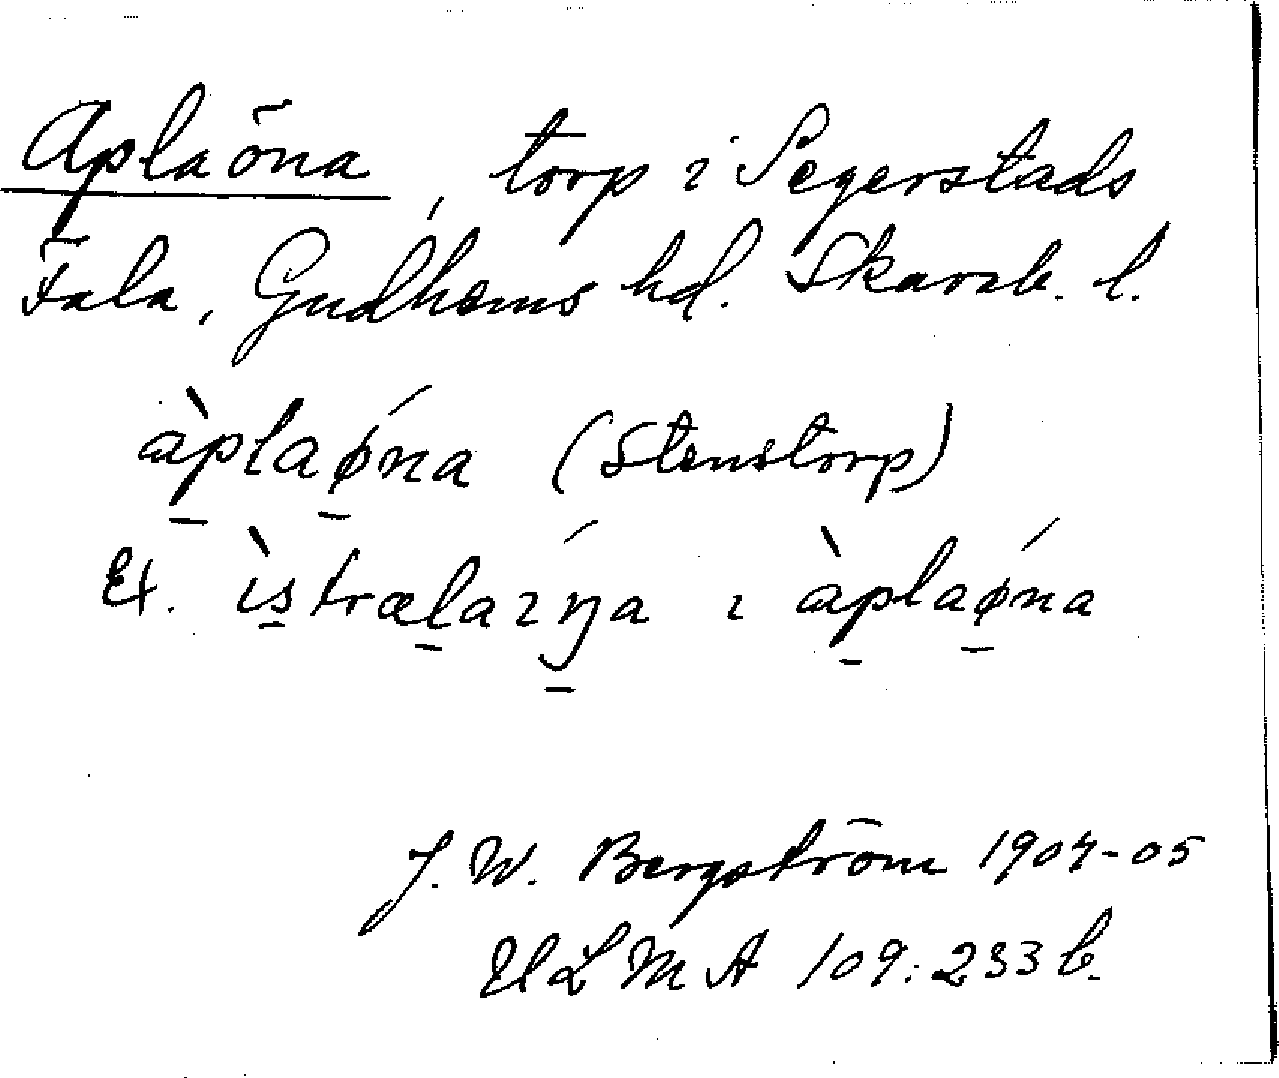 Aplaöna, torp i Segerstads
Fala, Gudhems hd. Skarab. l.
àplaǿna (Stenstorp)
Ex. ìstrælaıŋ́a ı àplaǿna
J. W. Bergström 1904-05
ULMA 109:233 b.